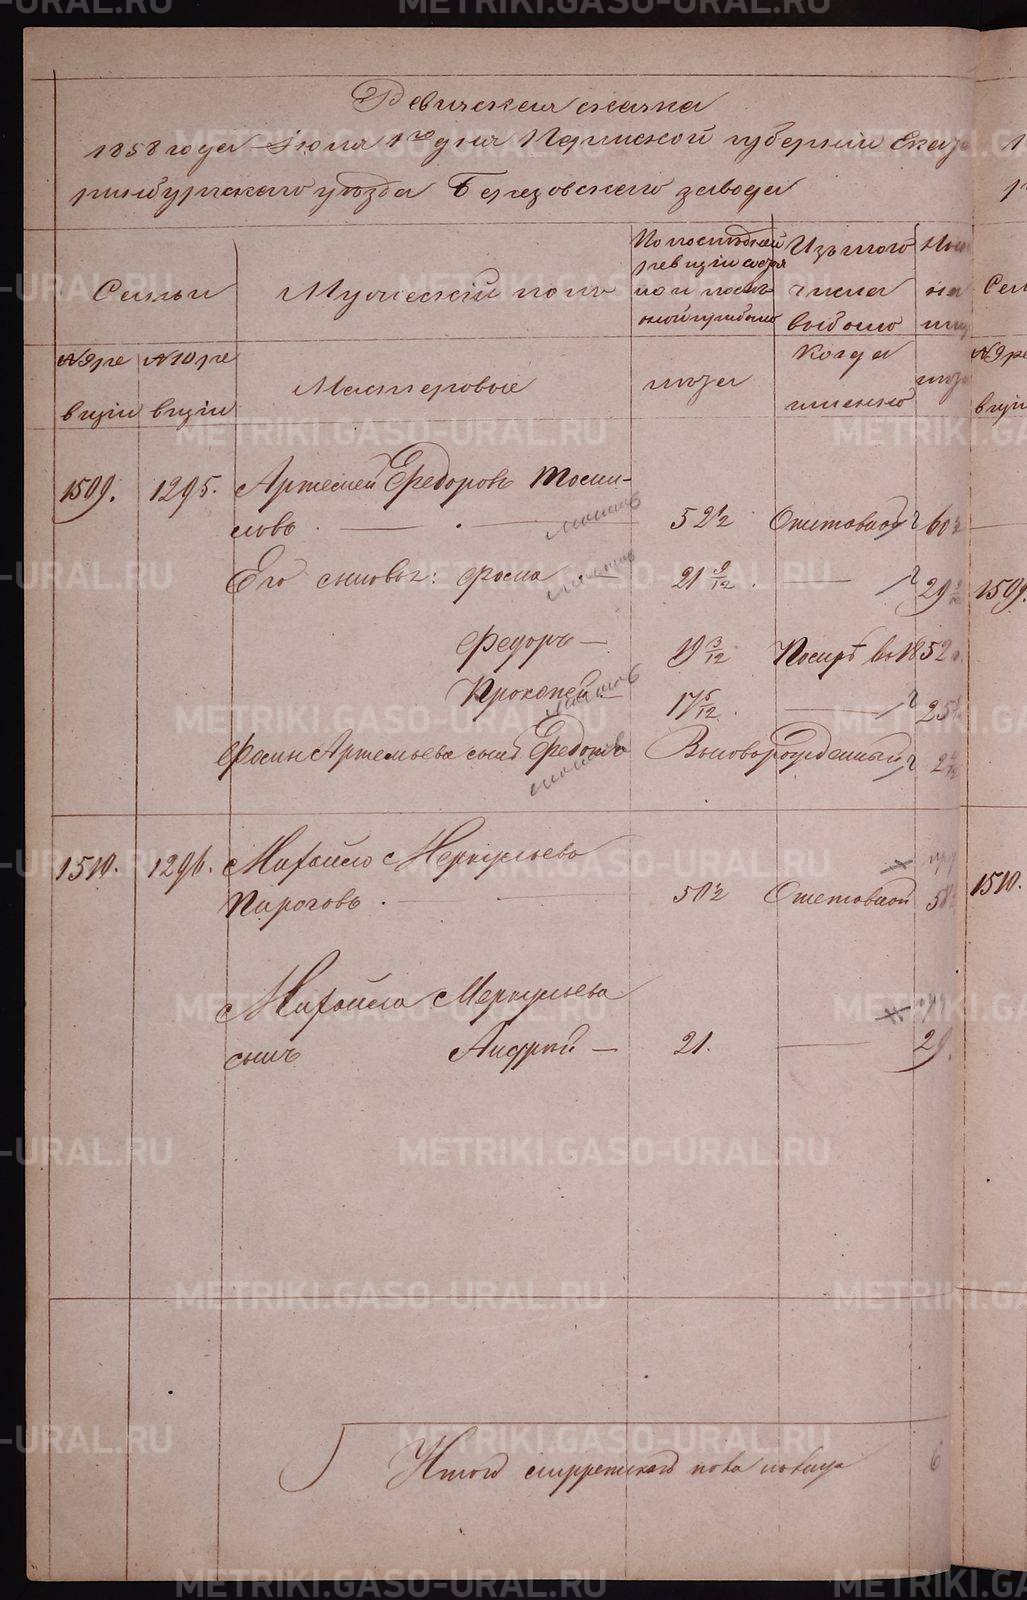 Ревижская скаска
1858 года Июня 1го дня Пермской губернии Екате
ринбургскаго уезда Березовскаго завода
Семьи
Мужеский полъ
По последней
ревизии состоя
ло и после
оной прибыло
Изъ того
числа
выбыло
на
№9 ре
визии
№10 ре
визии
Мастеровые
лета
Когда
именно
лета
1509.
1295.
Артемей Федоровъ
ловъ
52 1/2
Отставной
60
Его сыновья: Фома
21 9/12
29
1509.
Федоръ
19 3/12
Помръ в 1852
Прокопей
17 5/12
25
Фомин Артемьева сынъ Федотъ
Вновь рожденный
2
1510.
1296.
Михайло Меркульева
Пироговъ
50 1/2
Отставной
58
1510.
Михайла Меркульева
сынъ Андрей
21.
29.
Итого мужескаго пола на лицо
6
METRIKI.GASO-URAL.RU